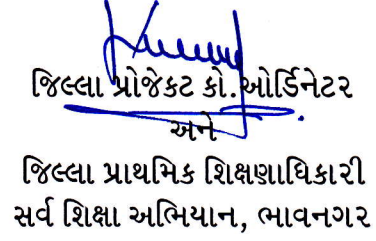 જિલ્લા પ્રોજેકટ કો.ઓર્ડિનેટર
અને
જિલ્લા પ્રાથમિક શિક્ષણાધિકારી
સર્વ શિક્ષા અભિયાન, ભાવનગર